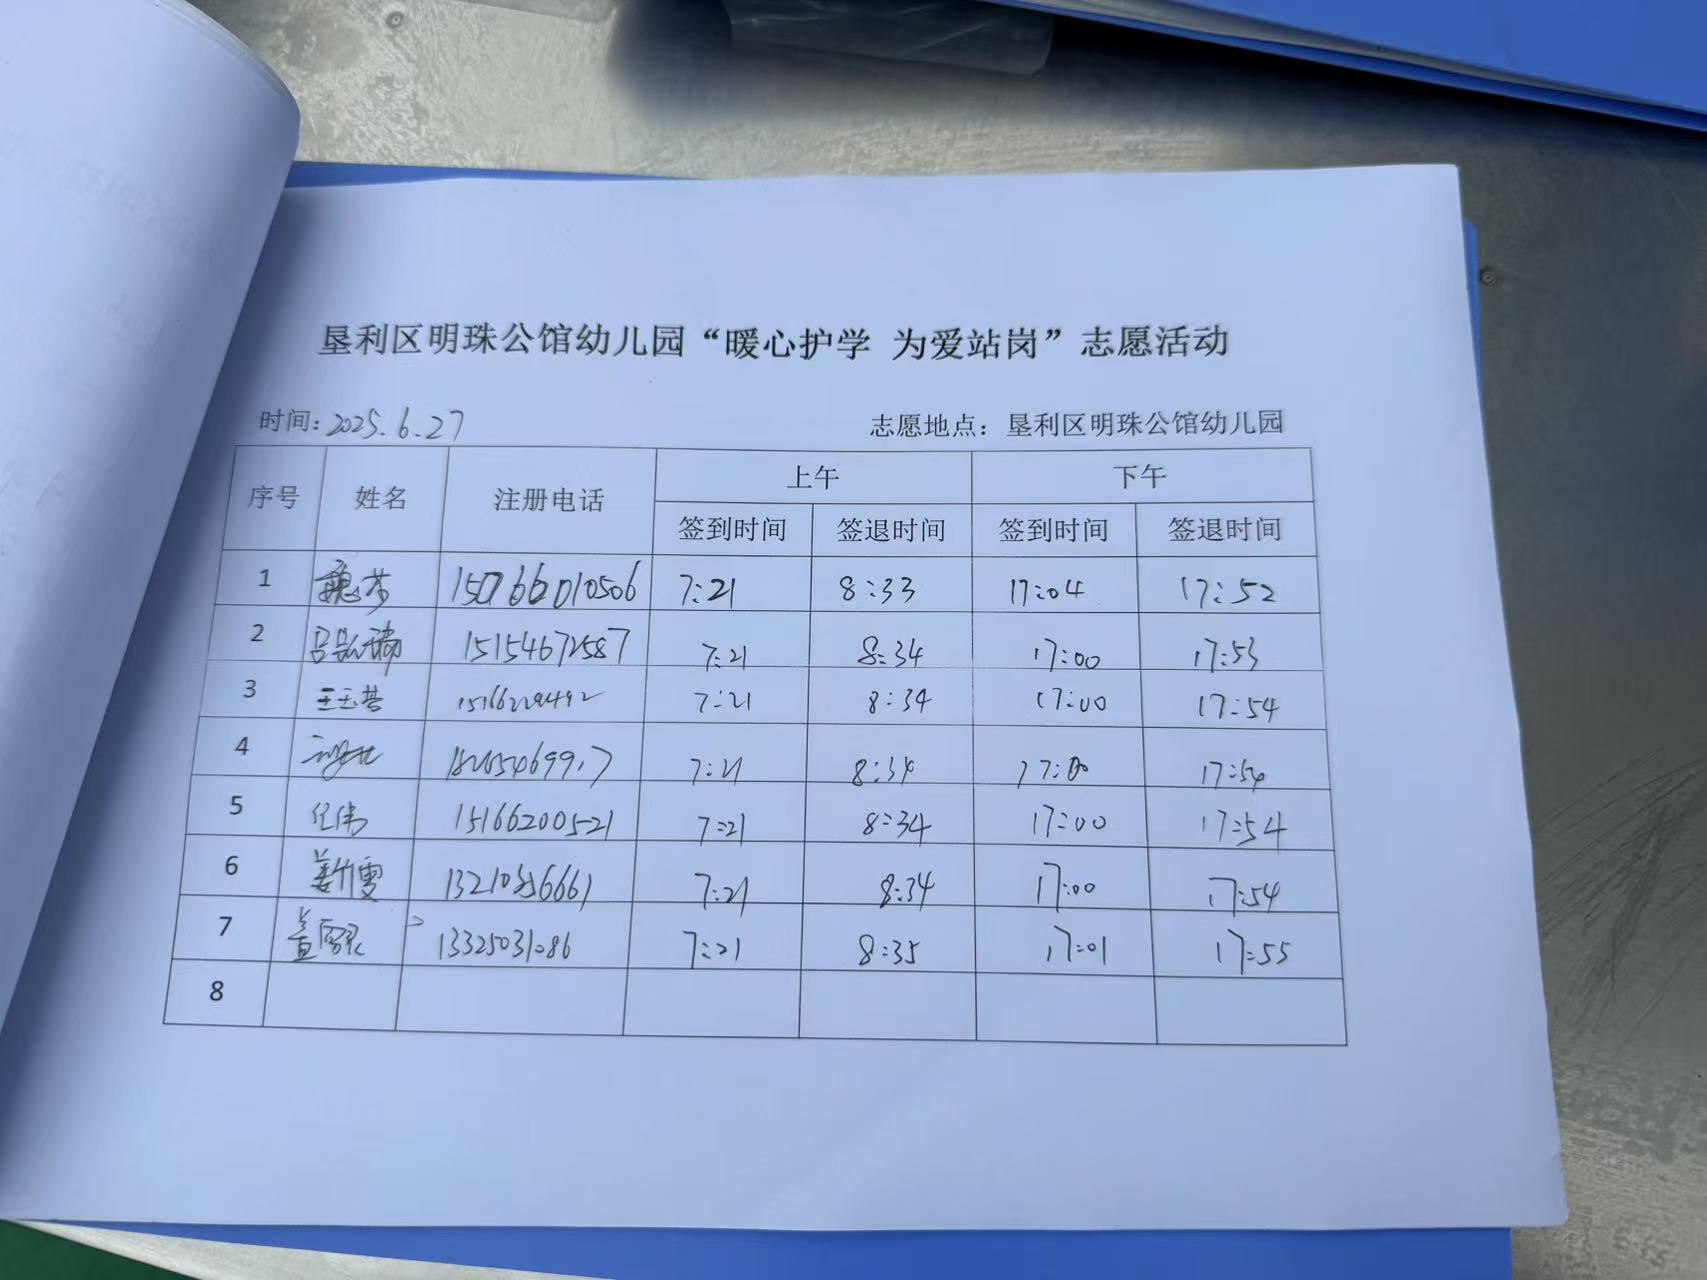 垦利区明珠公馆幼儿园“暖心护学 为爱站岗”志愿活动
时间：2025.6.27 志愿地点：垦利区明珠公馆幼儿园
序号 姓名 注册电话 上午 下午
签到时间 签退时间 签到时间 签退时间
1 魏芬 7:21 8:33 17:04 17:52
2 15154672587 7:21 8:34 17:00 17:53
3 王玉苔 7:21 8:34 17:00 17:54
4 7:21 8:34 17:00 17:54
5 任伟 15166200521 7:21 8:34 17:00 17:54
6 7:21 8:34 17:00 17:54
7 7:21 8:35 17:01 17:55
8